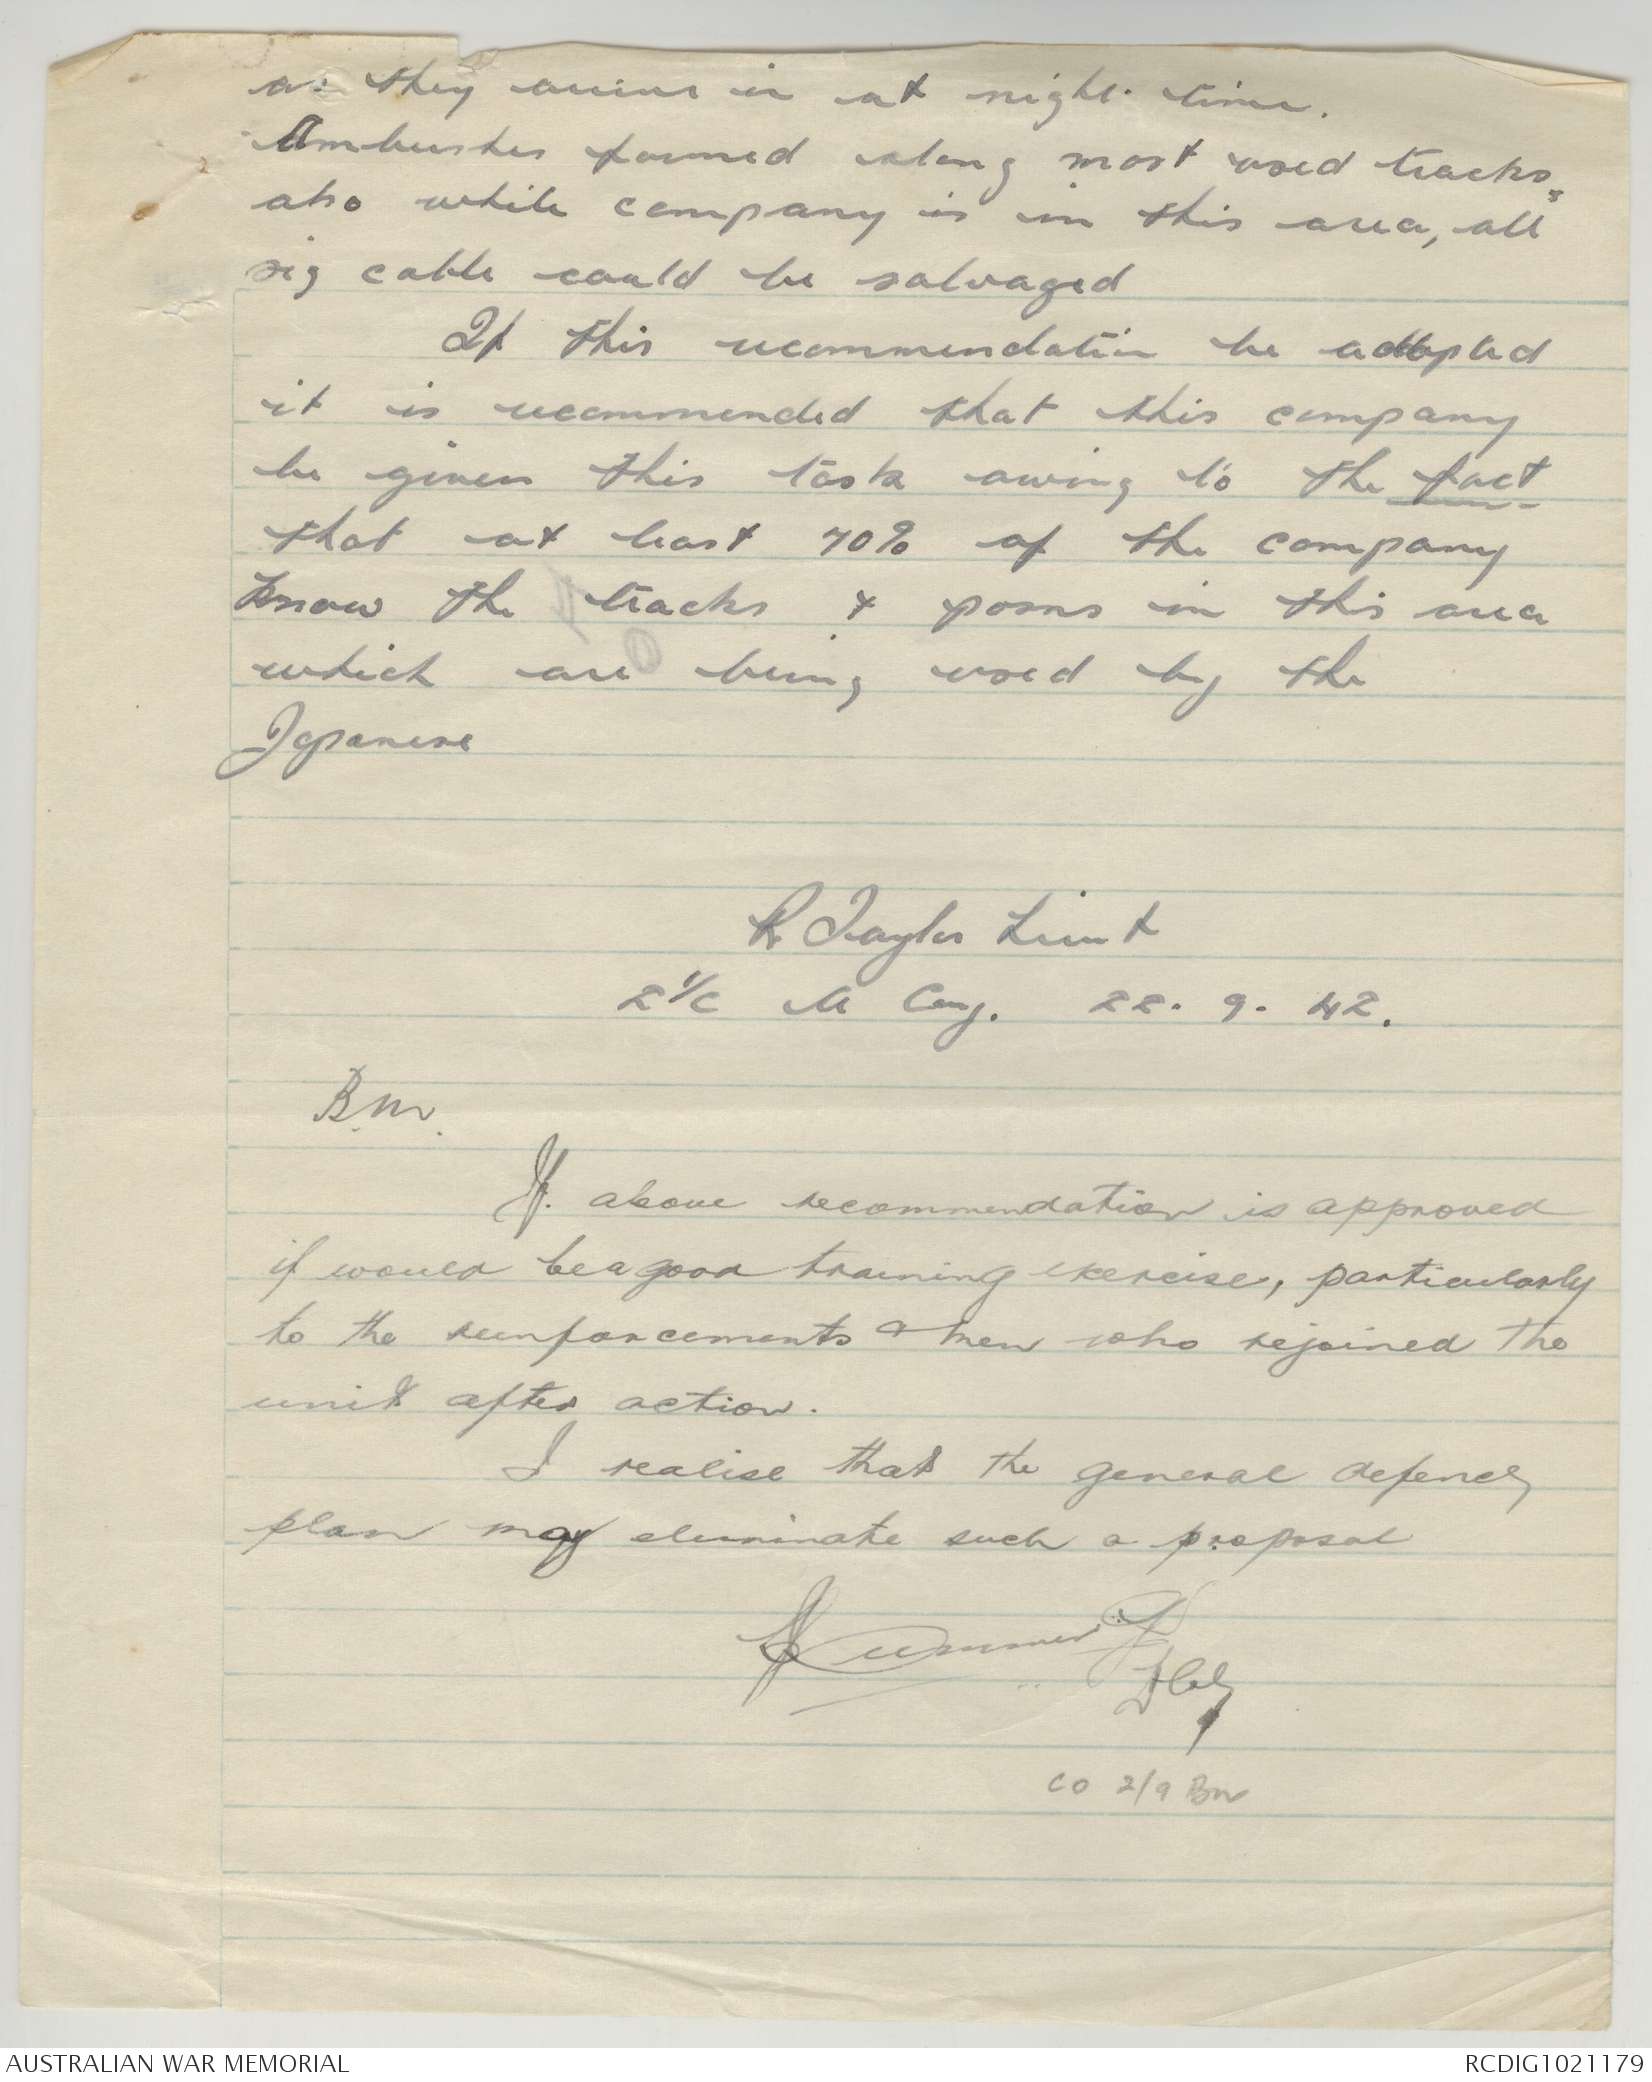 as they arrive in at night time.
Ambushes formed along most used tracks,
also while company is in this area, all
sig cable could be salvaged
If this recommendation be adopted
it is recommended that this company
be given this task owing to the fact
that at least 70% of the company
know the tracks & posns in this area
which are being used by the
Japanese
R Taylor Lieut
2 I/C A Coy. 22. 9. 42.
B.M.
If above recommendation is approved
if would be a good training exercise, particularly
to the reinforcements & men who rejoined the
unit after action.
I realise that the general defence
plan may eliminate such a proposal
Cummings
CO 2/9 Bn
AUSTRALIAN WAR MEMORIAL
RCDIG1021179